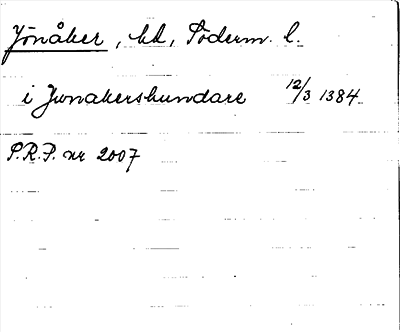 Jönåker, hd, Söderm. l.
i Junakershundare 12/3 1384
P.R.P. nr 2007